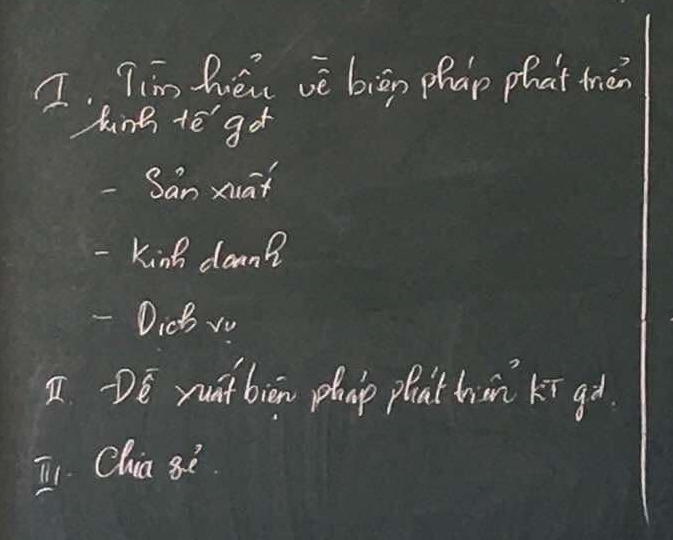 I. Tìm hiểu về biện pháp phát triển
kinh tế gđ
- Sản xuất
- Kinh doanh
- Dịch vụ
II. Đề xuất biện pháp phát triển KT gđ.
III. Chia sẻ.